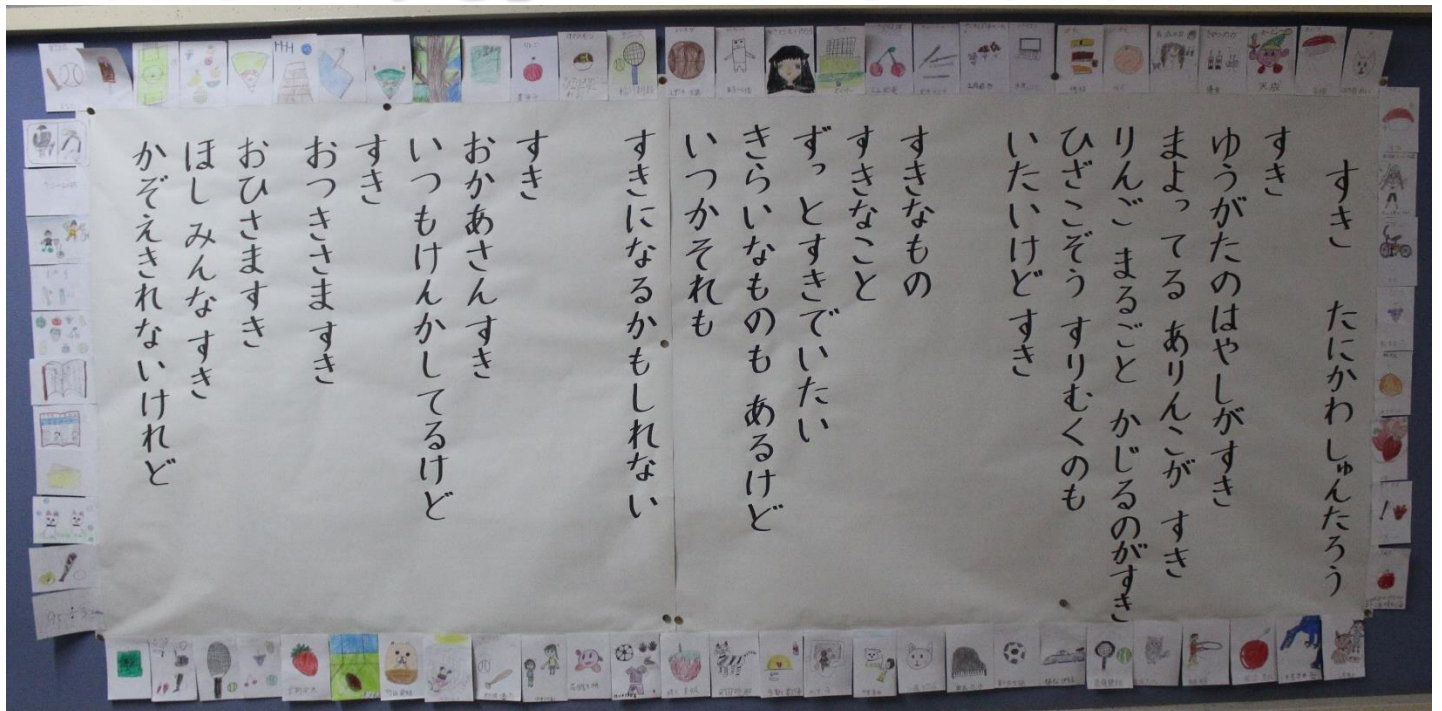 すき たにかわ しゅんたろう
すき
ゆうがたのはやしがすき
まよってる ありんこが すき
りんご まるごと かじるのがすき
ひざこぞう すりむくのも
いたいけどすき
すきなもの
すきなこと
ずっとすきでいたい
きらいなものも あるけど
いつかそれも
すきになるかもしれない
すき
おかあさんすき
いつもけんかしてるけど
すき
おつきさますき
おひさますき
ほしみんなすき
かぞえきれないけれど